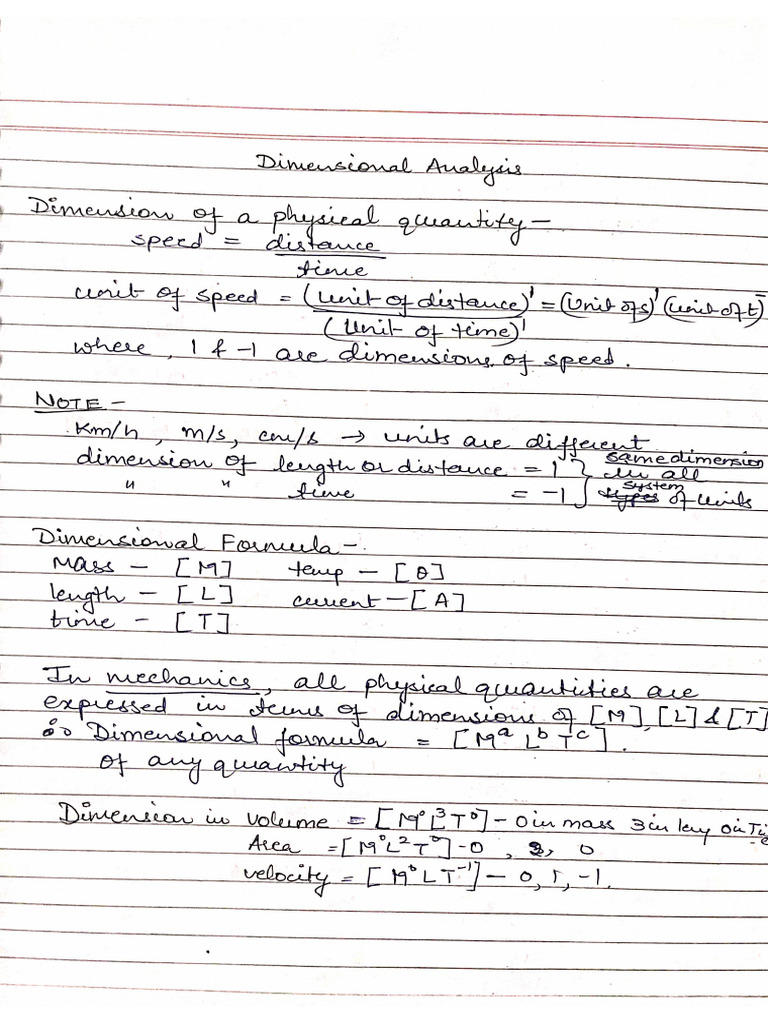 Dimensional Analysis
Dimension of a physical quantity –
speed = distance
time
unit of speed = (Unit of distance)¹ = (Unit of s)¹ (unit of t)⁻
(Unit of time)¹
where, 1 & -1 are dimensions of speed.
NOTE –
Km/h, m/s, cm/s → units are different
dimension of length or distance = 1 } same dimension in all
" " time = -1 } types system of units
Dimensional Formula –
Mass – [M] temp – [θ]
length – [L] current – [A]
time – [T]
In mechanics, all physical quantities are
expressed in terms of dimensions of [M], [L] & [T]
∴ Dimensional formula = [Mᵃ Lᵇ Tᶜ].
of any quantity
Dimension in volume = [M⁰L³T⁰] – 0 in mass 3 in len 0 in Time
Area = [M⁰L²T⁰] – 0, 2, 0
velocity = [M⁰LT⁻¹] – 0, 1, -1.